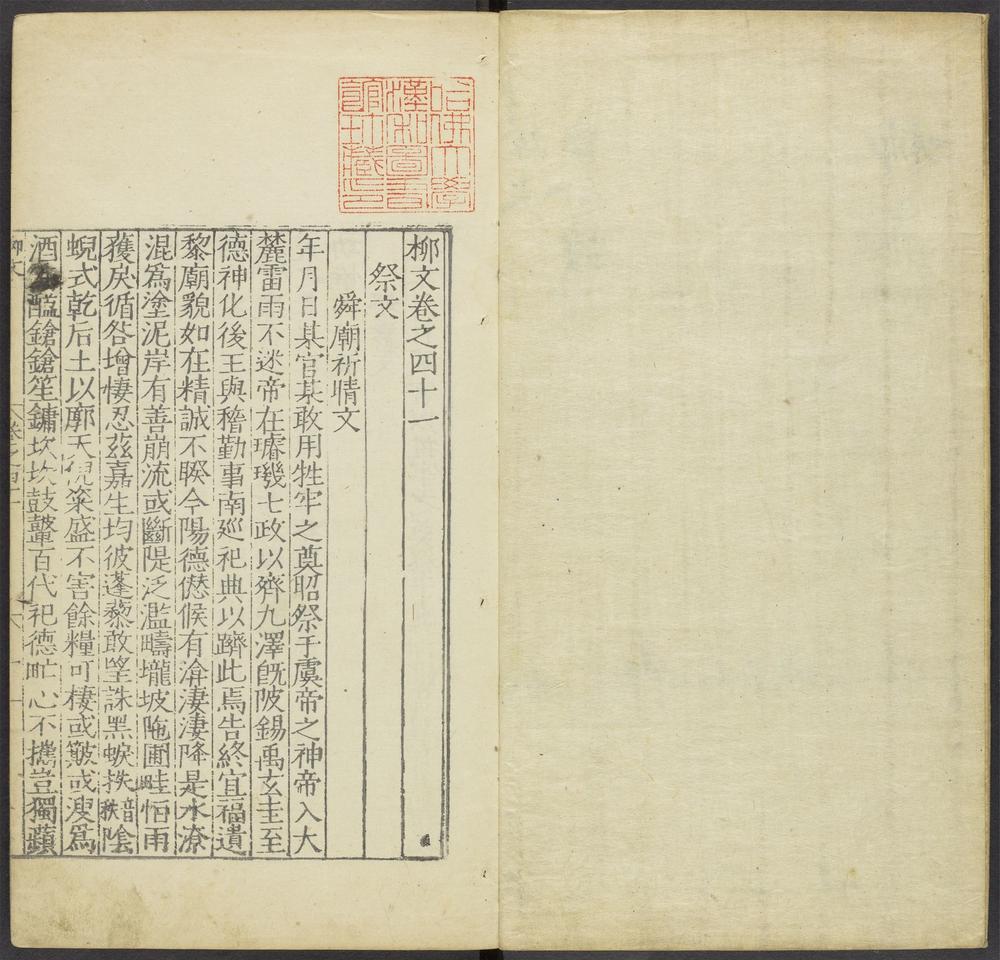 哈佛大學
漢和圖書
館珍藏印
柳文卷之四十一
祭文
舜廟祈晴文
年月日某官某敢用牲牢之奠昭祭于虞帝之神帝入大
麓雷雨不迷帝在璿璣七政以齊九澤旣陂錫禹玄圭至
德神化後王與稽勤事南廵祀典以躋此焉告終宜福遺
黎廟貌如在精誠不暌今陽德僽候有渰淒淒降是水潦
混爲塗泥岸有善崩流或斷隄泛濫疇壠坡陁圃畦恒雨
獲戾循咎增悽忍兹嘉生均彼蓬藜敢望誅黑蜧抶音秩陰
蜺式乾后土以廓天倪粢盛不害餘糧可棲或簸或溲爲
酒醯鎗鎗笙鏞坎坎鼓鼙百代祀德甿心不攜豈獨蘋